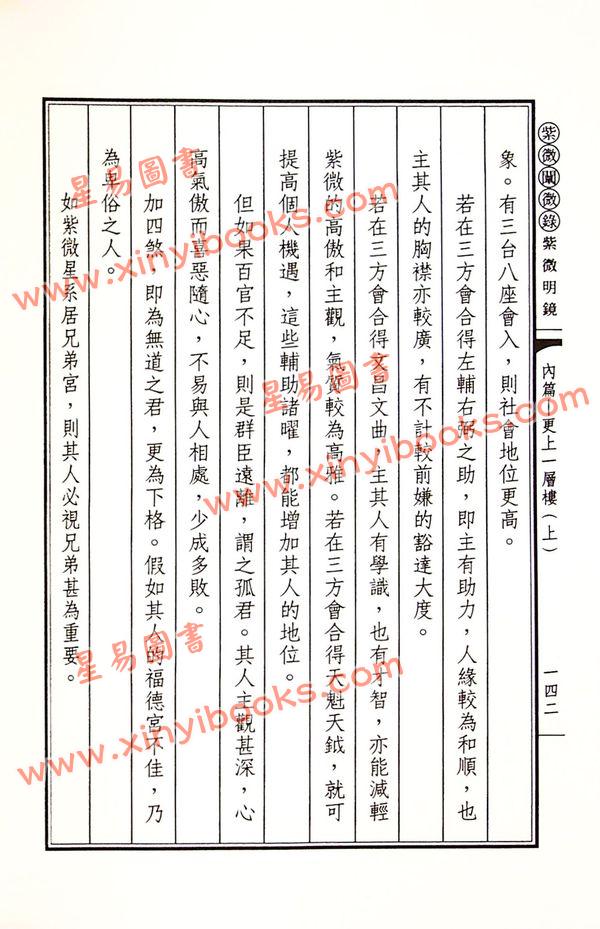 紫微闡微錄 紫微明鏡
內篇 更上一層樓(上)
一四二
象。有三台八座會入,則社會地位更高。
若在三方會合得左輔右弼之助,即主有助力,人緣較為和順,也
主其人的胸襟亦較廣,有不計較前嫌的豁達大度。
若在三方會合得文昌文曲,主其人有學識,也有才智,亦能減輕
紫微的高傲和主觀,氣質較為高雅。若在三方會合得天魁天鉞,就可
提高個人機遇,這些輔助諸曜,都能增加其人的地位。
但如果百官不足,則是群臣遠離,謂之孤君。其人主觀甚深,心
高氣傲而喜惡隨心,不易與人相處,少成多敗。
加四煞,即為無道之君,更為下格。假如其人的福德宮不佳,乃
為卑俗之人。
如紫微星系居兄弟宮,則其人必視兄弟甚為重要。
星易圖書
www.xinyibooks.com
星易圖書
www.xinyibooks.com
星易圖書
www.xinyibooks.com